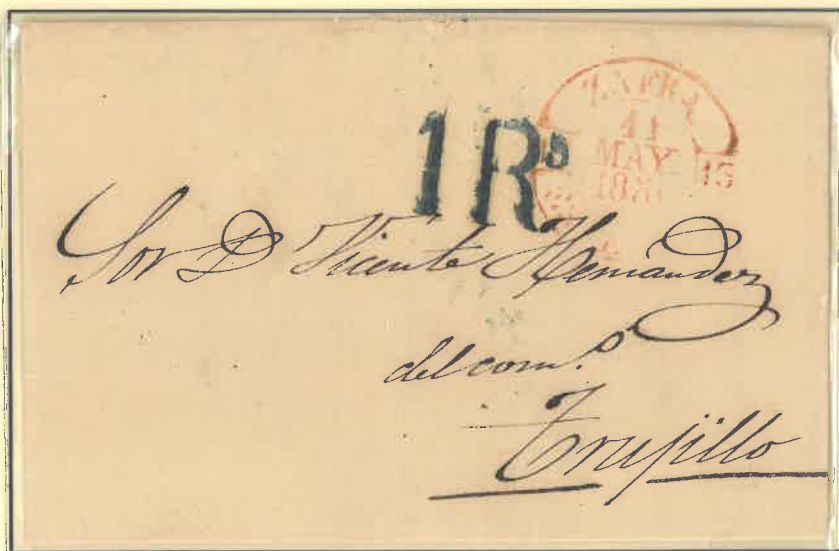 ZAFRA
11
MAY
15
1 Rs
Sor D Vicente Hernandez
del com.o
Trujillo